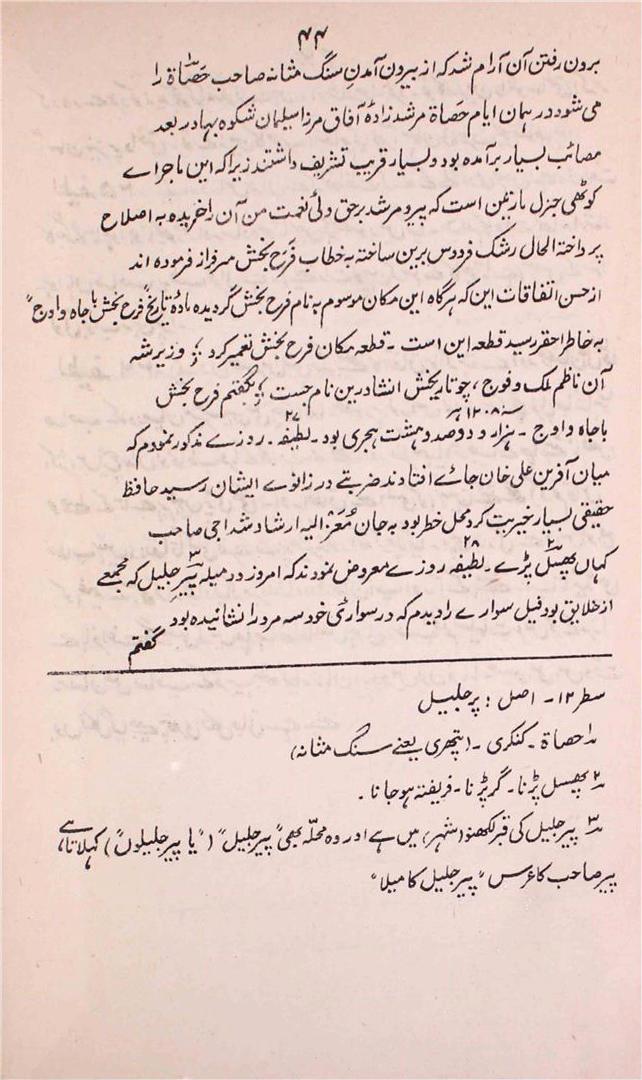 ۴۴
برون رفتن آن آرام نشد که از بیرون آمدنِ سنگ مثانہ صاحب حَصَاة را
می شود در ہمان ایام حَصَاة مرشد زادۂ آفاق مرزا سلیمان شکوہ بہادر بعد
مصائب بسیار برآمدہ بود و بسیار قریب تشریف داشتند زیرا کہ این ماجراے
کوٹھی جنرل مارٹین است کہ پیر و مرشد برحق ولیٔ نعمت من آن را خریدہ بہ اصلاح
پرداختہ الحال رشک فردوس برین ساختہ بہ خطاب فَرَح بخش سرفراز فرمودہ اند
از حسن اتفاقات این کہ ہرگاہ این مکان موسوم بہ نام فرح بخش گردیدہ مادۂ تاریخ "فرح بخش با جاہ و اوج"
بہ خاطر احقر رسید قطعہ این است ۔ قطعہ مکان فرح بخش تعمیر کرد ؛ وزیر شہ
آن ناظم ملک و فوج ، چو تاریخش انشا درین نام جست ؛ بگفتم فرح بخش
با جاہ و اوج ۔ ہزار و دو صد و ہشت ہجری بود ۔ ۲۷ لطیفہ ۔ روزے مذکور نمودم کہ ۱۲۰۸
میان آفرین علی خان جاے افتادند ضربتے در زانوے ایشان رسید حافظ
حقیقی بسیار خیریت کرد محل خطر بود بہ جان مُعَزّ الیہ ارشاد شد اجی صاحب
کہاں پھسل ۲ پڑے ۔ ۲۸ لطیفہ روزے معروض نمودند کہ امروز در میلہ پیر جلیل ۳ کہ مجمعے
از خلایق بود فیل سوارے را دیدم کہ در سواریٔ خود سہ مرد را نشانیدہ بود
گفتم
سطر ۱۲ ۔ اصل : پر جلیل
۱ حصاة ۔ کنکری ۔ (پتھری یعنے سنگ مثانہ)
۲ پھسل پڑنا ۔ گر پڑنا ۔ فریفتہ ہو جانا ۔
۳ پیر جلیل کی قبر لکھنؤ (شہر) میں ہے اور وہ محلّہ بھی "پیر جلیل" ("یا پیر جلیلوں") کہلاتا ہے،
پیر صاحب کا عُرس "پیر جلیل کا میلا"